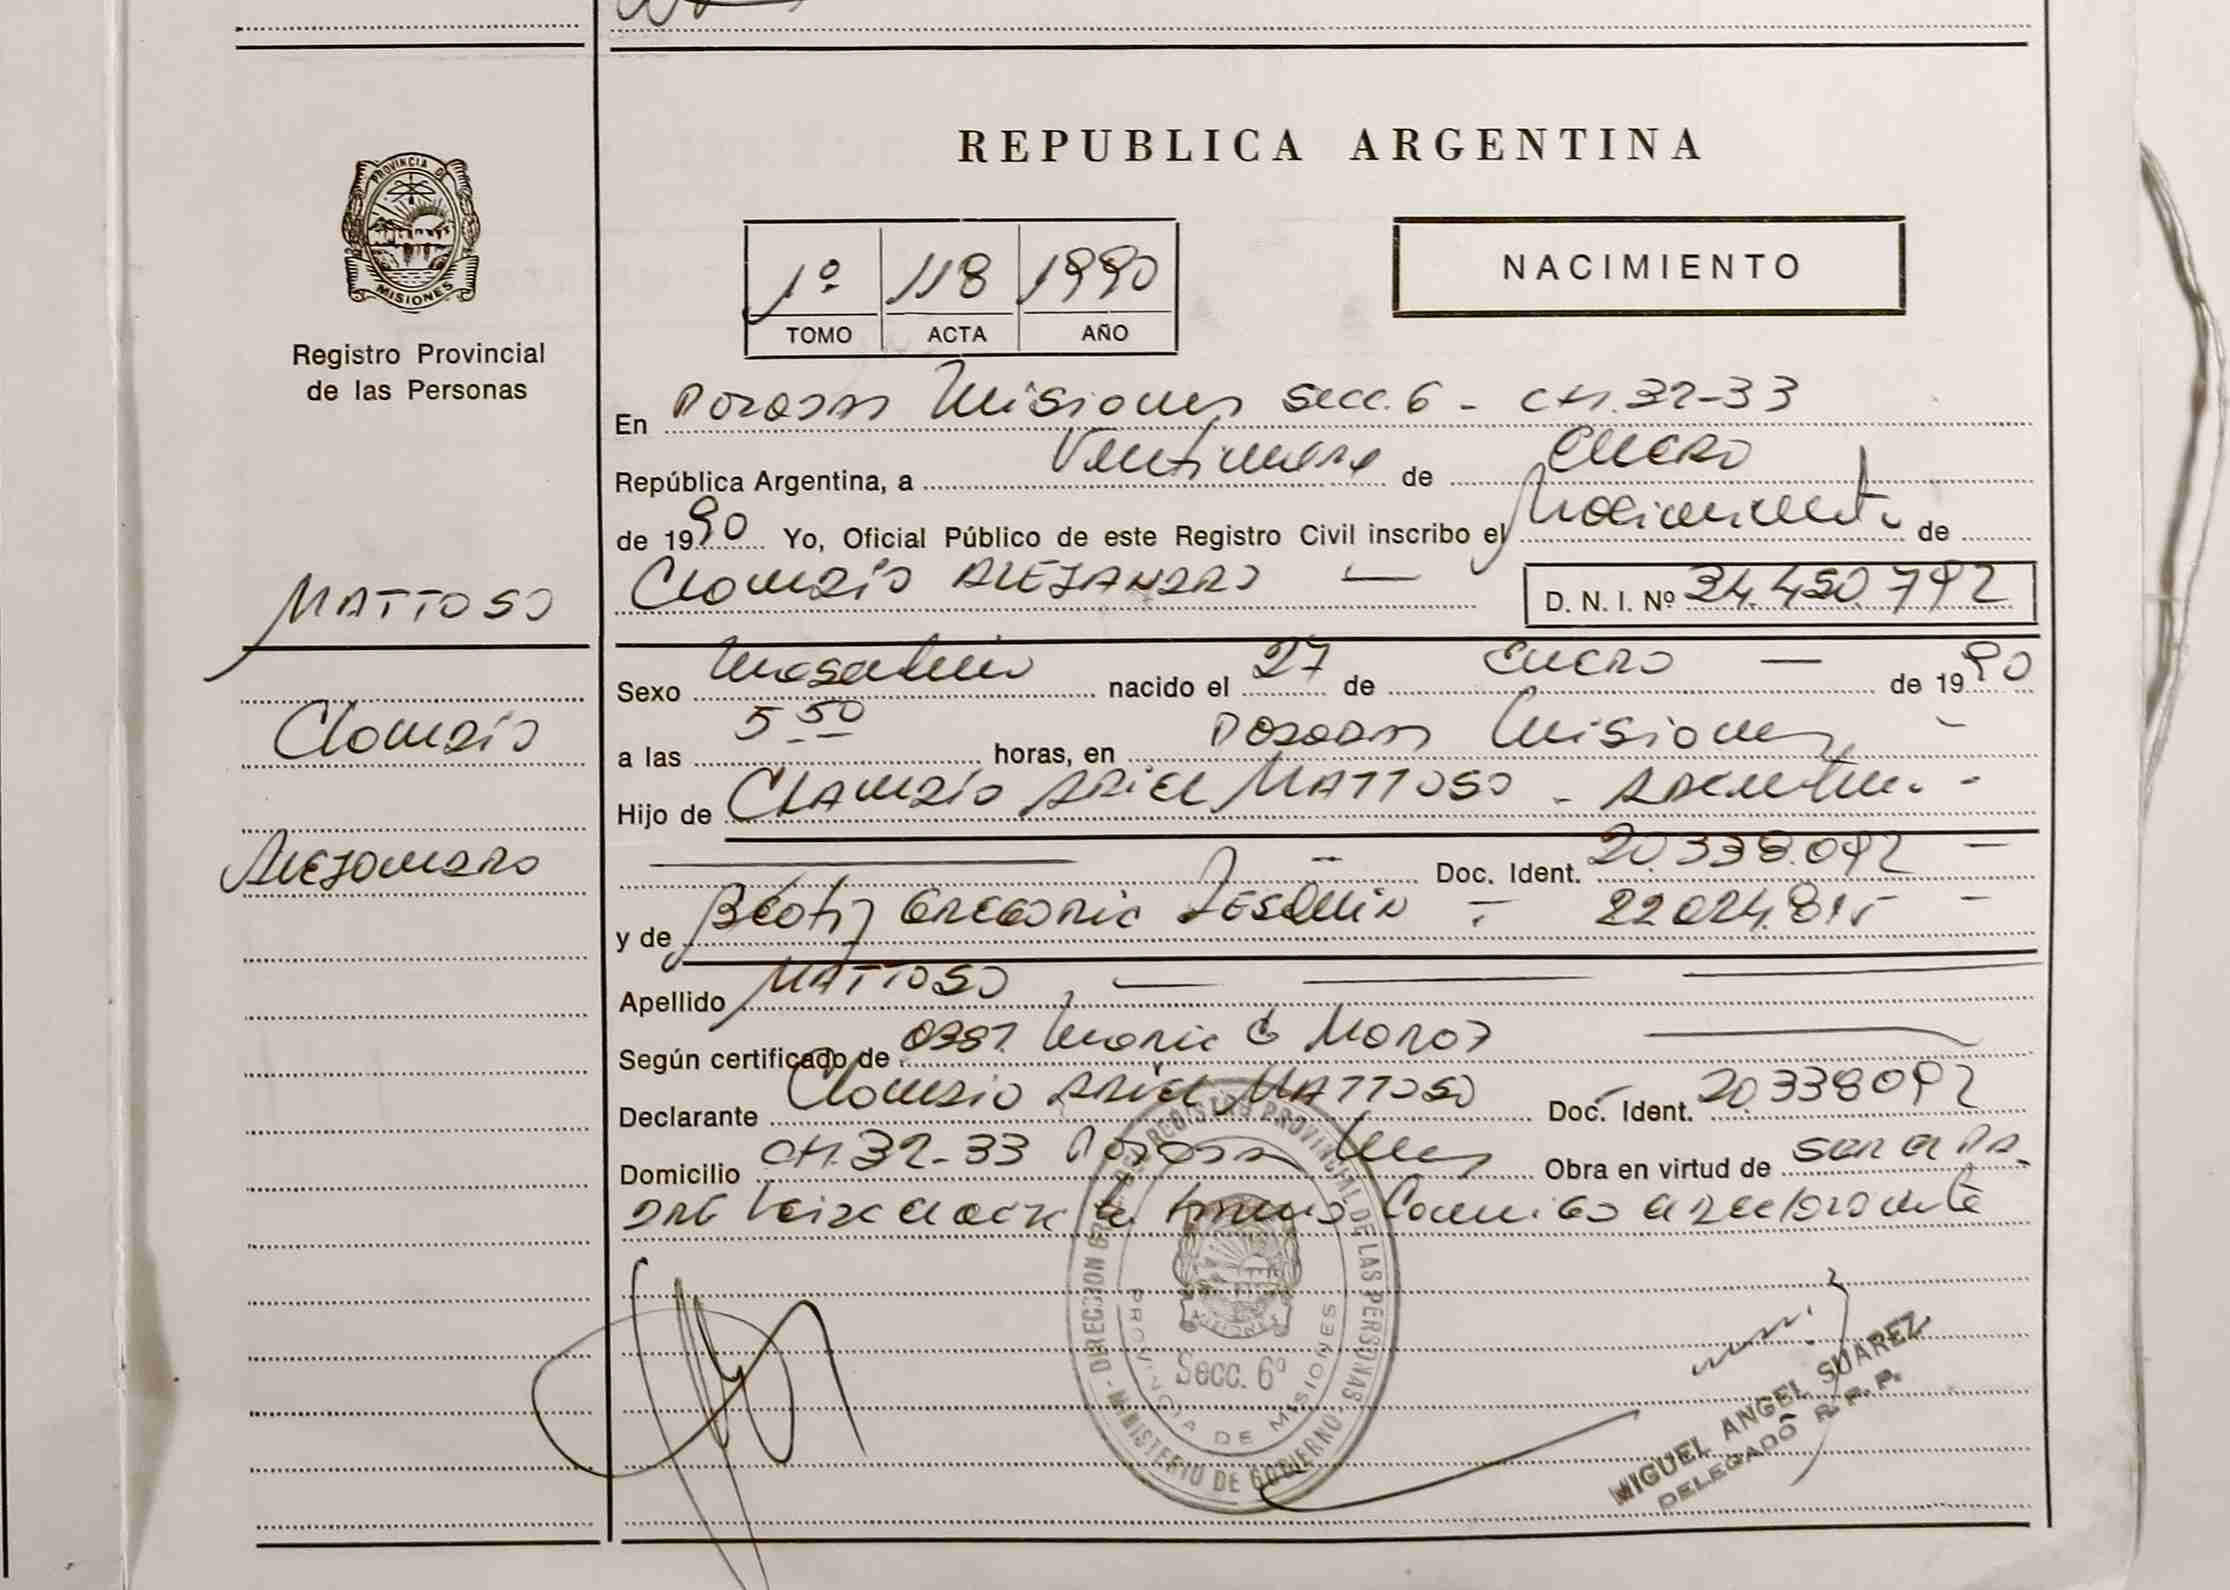 REPUBLICA ARGENTINA
PROVINCIA DE
MISIONES
Registro Provincial
de las Personas
1º 118 1990
TOMO ACTA AÑO
NACIMIENTO
En Posadas Misiones Secc. 6 - CH. 32-33
República Argentina, a Veintinueve de Enero
de 1990 Yo, Oficial Público de este Registro Civil inscribo el Nacimiento de
Claudio ALEJANDRO — D. N. I. Nº 34.450.792
MATTOSO
Sexo Masculino nacido el 27 de Enero — de 1990
Claudio
a las 5 50 horas, en Posadas Misiones -
Hijo de Claudio ARIEL MATTOSO - Argentino -
Alejandro
— Doc. Ident. 20.338.092 —
y de Beatriz GREGORIA - 22024.815 -
Apellido MATTOSO
Según certificado de Obst. Maria
Declarante Claudio ARIEL MATTOSO Doc. Ident. 20.338092
Domicilio CH. 32-33 Posadas Mnes Obra en virtud de ser el pa-
dre firmando conmigo el declarante
DIRECCION GRAL. DEL REGISTRO PROVINCIAL DE LAS PERSONAS - MINISTERIO DE GOBIERNO -
PROVINCIA DE MISIONES
Secc. 6º
MIGUEL ANGEL SUAREZ
DELEGADO R. P. P.